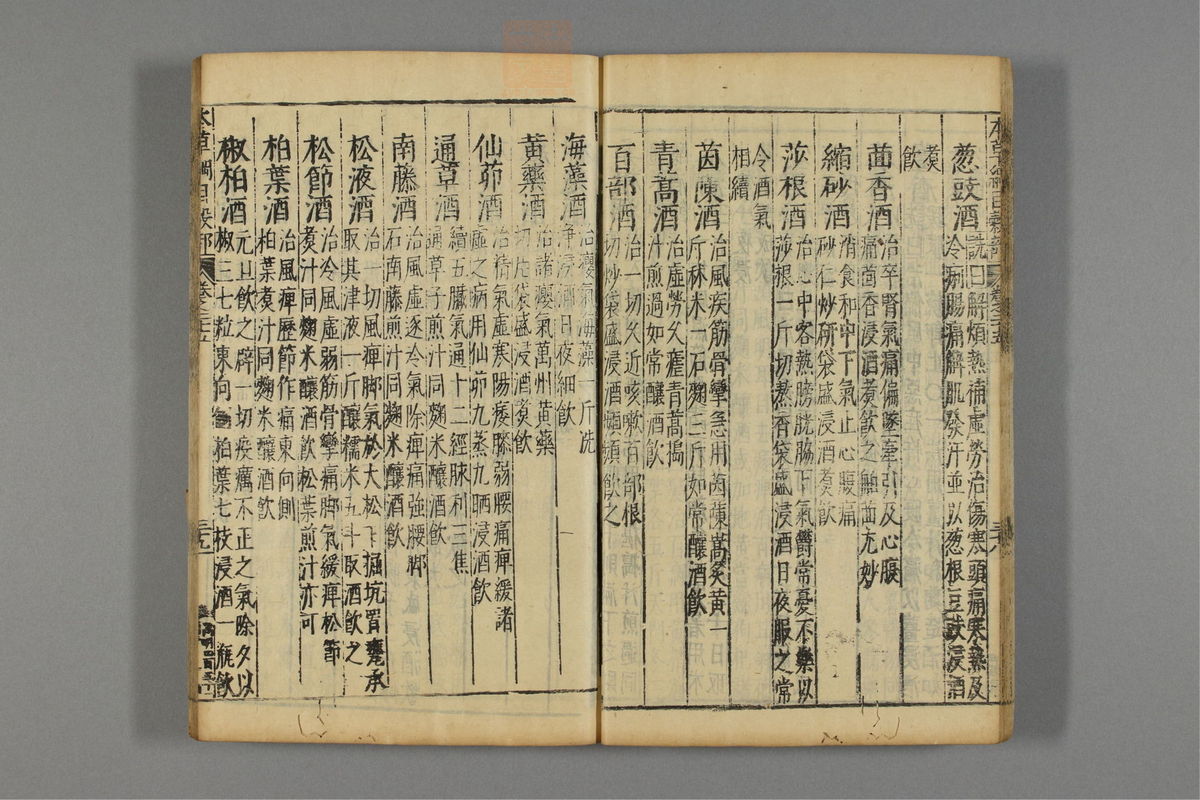 葱豉酒 詵曰解煩熱補虛勞治傷寒頭痛寒熱及
冷痢腸痛解肌發汗並以葱根豆豉浸酒
煑
飲
茴香酒 治卒腎氣痛偏墜牽引及心腹
痛茴香浸酒煑飲之舶茴尤妙
縮砂酒 消食和中下氣止心腹痛
砂仁炒研袋盛浸酒煑飲
莎根酒 治心中客熱膀胱脇下氣鬱常憂不樂以
莎根一斤切熬香袋盛浸酒日夜服之常
令酒氣
相續
茵蔯酒 治風疾筋骨攣急用茵蔯蒿炙黃一
斤秫米一石麴三斤如常釀酒飲
青蒿酒 治虛勞久瘧青蒿搗
汁煎過如常釀酒飲
百部酒 治一切久近咳嗽百部根
切炒袋盛浸酒頻頻飲之
海藻酒 治癭氣海藻一斤洗
淨浸酒日夜細飲
黃藥酒 治諸癭氣萬州黃藥
切片袋盛浸酒煑飲
仙茆酒 治精氣虛寒陽痿膝弱腰痛痺緩諸
虛之病用仙茆九蒸九晒浸酒飲
通草酒 續五臟氣通十二經脉利三焦
通草子煎汁同麴米釀酒飲
南藤酒 治風虛逐冷氣除痺痛強腰脚
石南藤煎汁同麴米釀酒飲
松液酒 治一切風痺脚氣於大松下掘坑置甕承
取其津液一斤釀糯米五斗取酒飲之
松節酒 治冷風虛弱筋骨攣痛脚氣緩痺松節
煑汁同麴米釀酒飲松葉煎汁亦可
柏葉酒 治風痺歷節作痛東向側
柏葉煑汁同麴米釀酒飲
椒柏酒 元旦飲之辟一切疾癘不正之氣除夕以
椒三七粒東向側柏葉七枝浸酒一瓶飲
本草綱目穀部 卷之二十五 三九